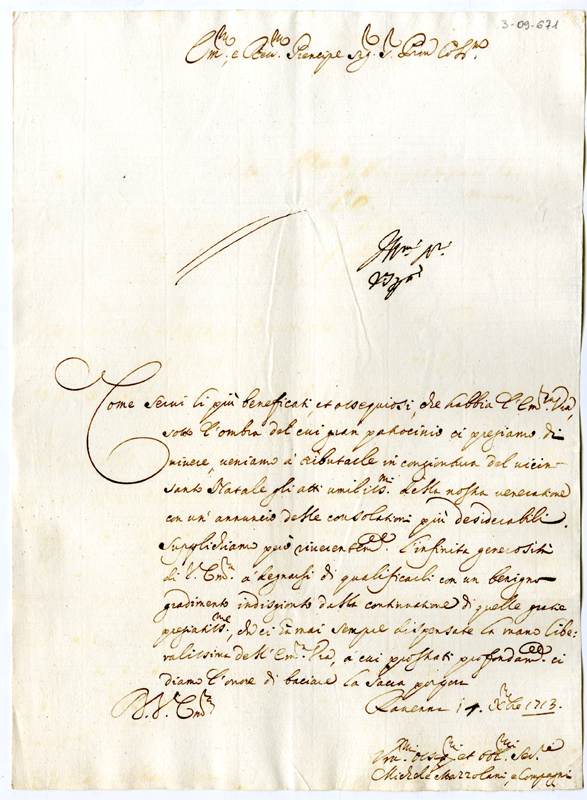 3-09-671
Em.mo e Rev.mo Principe Sig. S. Pron Col.mo
Come servi li più beneficati et ossequiosi, che habbia l'Em.za V.ra
sotto l'ombra del cui gran patrocinio ci pregiamo di
vivere, veniamo a' tributarle in congiontura del vicin
santo Natale gli atti umilis.mi della nostra veneratione
con un' annuncio delle consolationi più desiderabili.
Supplichiamo però riverentem.te l'infinita generosità
di V. Em.za a' degnarsi di qualificarli con un benigno
gradimento indisgionto dalla continuatione di quelle gratie
pregiatiss.me, che ci ha mai sempre dispensate la mano libe-
ralissima dell' Em.za V.ra, a cui prostrati profondam.te ci
diamo l'onore di baciare la Sacra porpora
D. V. Em.za
Ravenna 14. Xbre 1713.
Um.mi et Obl. Ser.i
Michele Mazzolani, e Compagni